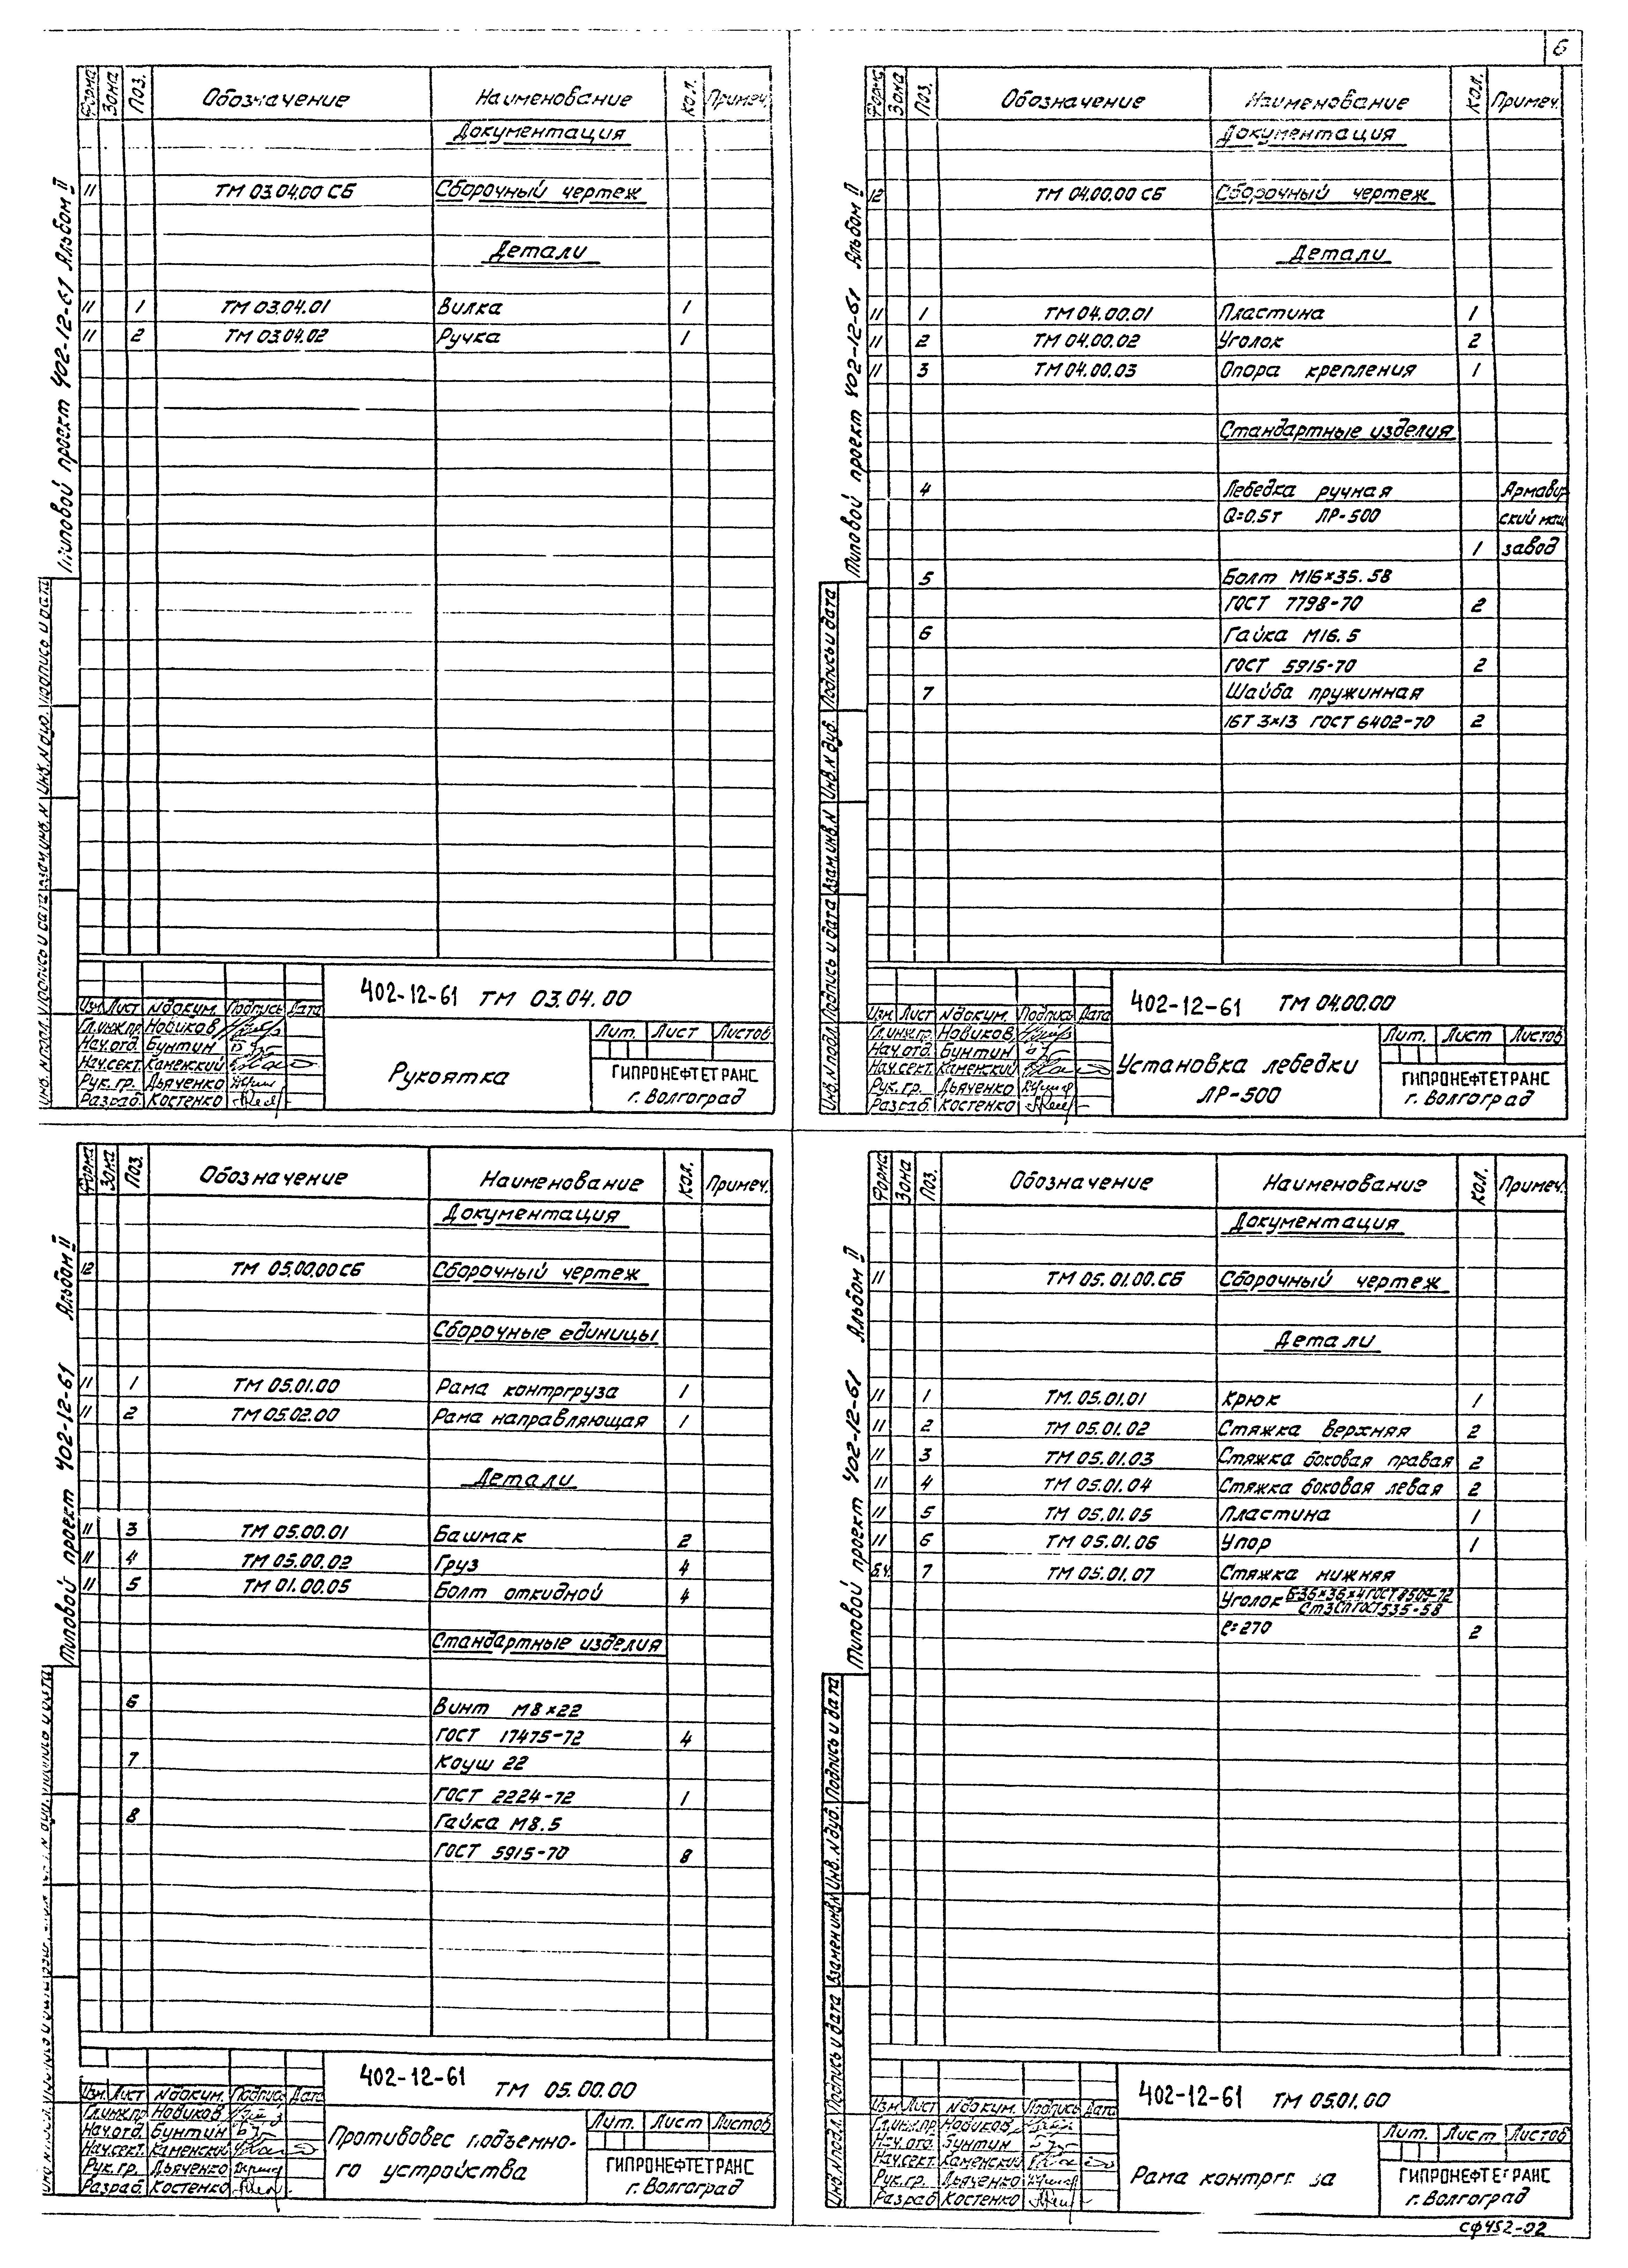 6
Типовой проект 402-12-61 Альбом II
Форма Зона Поз. Обозначение Наименование Кол. Примеч.
Документация
11 ТМ 03.04.00 СБ Сборочный чертеж
Детали
11 1 ТМ 03.04.01 Вилка 1
11 2 ТМ 03.04.02 Ручка 1
402-12-61 ТМ 03.04.00
Изм. Лист N докум. Подпись Дата
Гл.инж.пр. Новиков
Нач.отд. Бунтин
Нач.сект. Каменский
Рук. гр. Дьяченко
Разраб. Костенко
Рукоятка
Лит. Лист Листов
ГИПРОНЕФТЕТРАНС
г. Волгоград
Типовой проект 402-12-61 Альбом II
Форма Зона Поз. Обозначение Наименование Кол. Примеч.
Документация
12 ТМ 04.00.00 СБ Сборочный чертеж
Детали
11 1 ТМ 04.00.01 Пластина 1
11 2 ТМ 04.00.02 Уголок 2
11 3 ТМ 04.00.03 Опора крепления 1
Стандартные изделия
4 Лебедка ручная Армавир
Q=0.5т ЛР-500 ский маш
1 завод
5 Болт М16×35.58
ГОСТ 7798-70 2
6 Гайка М16.5
ГОСТ 5915-70 2
7 Шайба пружинная
16Т 3×13 ГОСТ 6402-70 2
Инв.N подл. Подпись и дата Взам.инв.N Инв.N дуб. Подпись и дата
402-12-61 ТМ 04.00.00
Изм. Лист N докум. Подпись Дата
Гл.инж.пр. Новиков
Нач.отд. Бунтин
Нач.сект. Каменский
Рук. гр. Дьяченко
Разраб. Костенко
Установка лебедки
ЛР-500
Лит. Лист Листов
ГИПРОНЕФТЕТРАНС
г. Волгоград
Типовой проект 402-12-61 Альбом II
Форма Зона Поз. Обозначение Наименование Кол. Примеч.
Документация
12 ТМ 05.00.00 СБ Сборочный чертеж
Сборочные единицы
11 1 ТМ 05.01.00 Рама контргруза 1
11 2 ТМ 05.02.00 Рама направляющая 1
Детали
11 3 ТМ 05.00.01 Башмак 2
11 4 ТМ 05.00.02 Груз 4
11 5 ТМ 01.00.05 Болт откидной 4
Стандартные изделия
6 Винт М8×22
ГОСТ 17475-72 4
7 Коуш 22
ГОСТ 2224-72 1
8 Гайка М8.5
ГОСТ 5915-70 8
402-12-61 ТМ 05.00.00
Изм. Лист N докум. Подпись Дата
Гл.инж.пр. Новиков
Нач.отд. Бунтин
Нач.сект. Каменский
Рук. гр. Дьяченко
Разраб. Костенко
Противовес подъемно-
го устройства
Лит. Лист Листов
ГИПРОНЕФТЕТРАНС
г. Волгоград
Типовой проект 402-12-61 Альбом II
Форма Зона Поз. Обозначение Наименование Кол. Примеч.
Документация
11 ТМ 05.01.00.СБ Сборочный чертеж
Детали
11 1 ТМ. 05.01.01 Крюк 1
11 2 ТМ 05.01.02 Стяжка верхняя 2
11 3 ТМ 05.01.03 Стяжка боковая правая 2
11 4 ТМ 05.01.04 Стяжка боковая левая 2
11 5 ТМ 05.01.05 Пластина 1
11 6 ТМ 05.01.06 Упор 1
Б.ч. 7 ТМ 05.01.07 Стяжка нижняя
Уголок Б-36×36×4 ГОСТ 8509-72
Ст3Сп ГОСТ 535-58
ℓ=270 2
Инв.N подл. Подпись и дата Взамен инв.N Инв.N дуб. Подпись и дата
402-12-61 ТМ 05.01.00
Изм Лист N докум. Подпись Дата
Гл.инж.пр. Новиков
Нач.отд. Бунтин
Нач.сект. Каменский
Рук. гр. Дьяченко
Разраб Костенко
Рама
Лит. Лист Листов
ГИПРОНЕФТЕТРАНС
г. Волгоград
СФ452-02